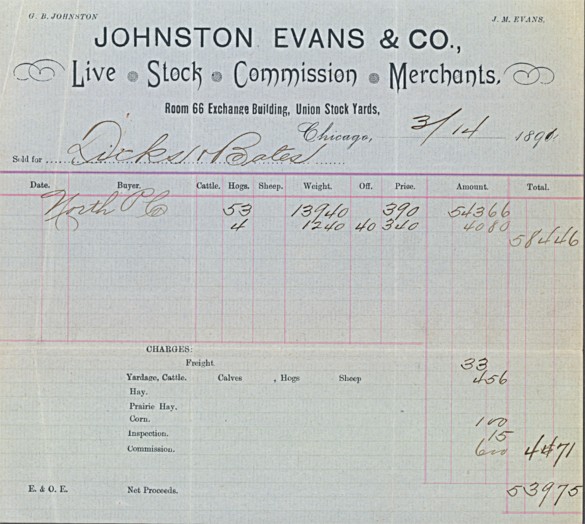 G. B. JOHNSTON J. M. EVANS.
JOHNSTON EVANS & CO.,
Live Stock Commission Merchants.
Room 66 Exchange Building, Union Stock Yards,
Chicago, 3/14 1891
Sold for Dirks & Bates
Date. Buyer. Cattle. Hogs. Sheep. Weight. Off. Price. Amount. Total.
North P C 53 13940 390 54366
4 1240 40 340 4080
58446
CHARGES:
Freight 33
Yardage, Cattle. Calves , Hogs Sheep 456
Hay.
Prairie Hay.
Corn. 100
Inspection. 15
Commission. 600 4471
E. & O. E. Net Proceeds. 53975